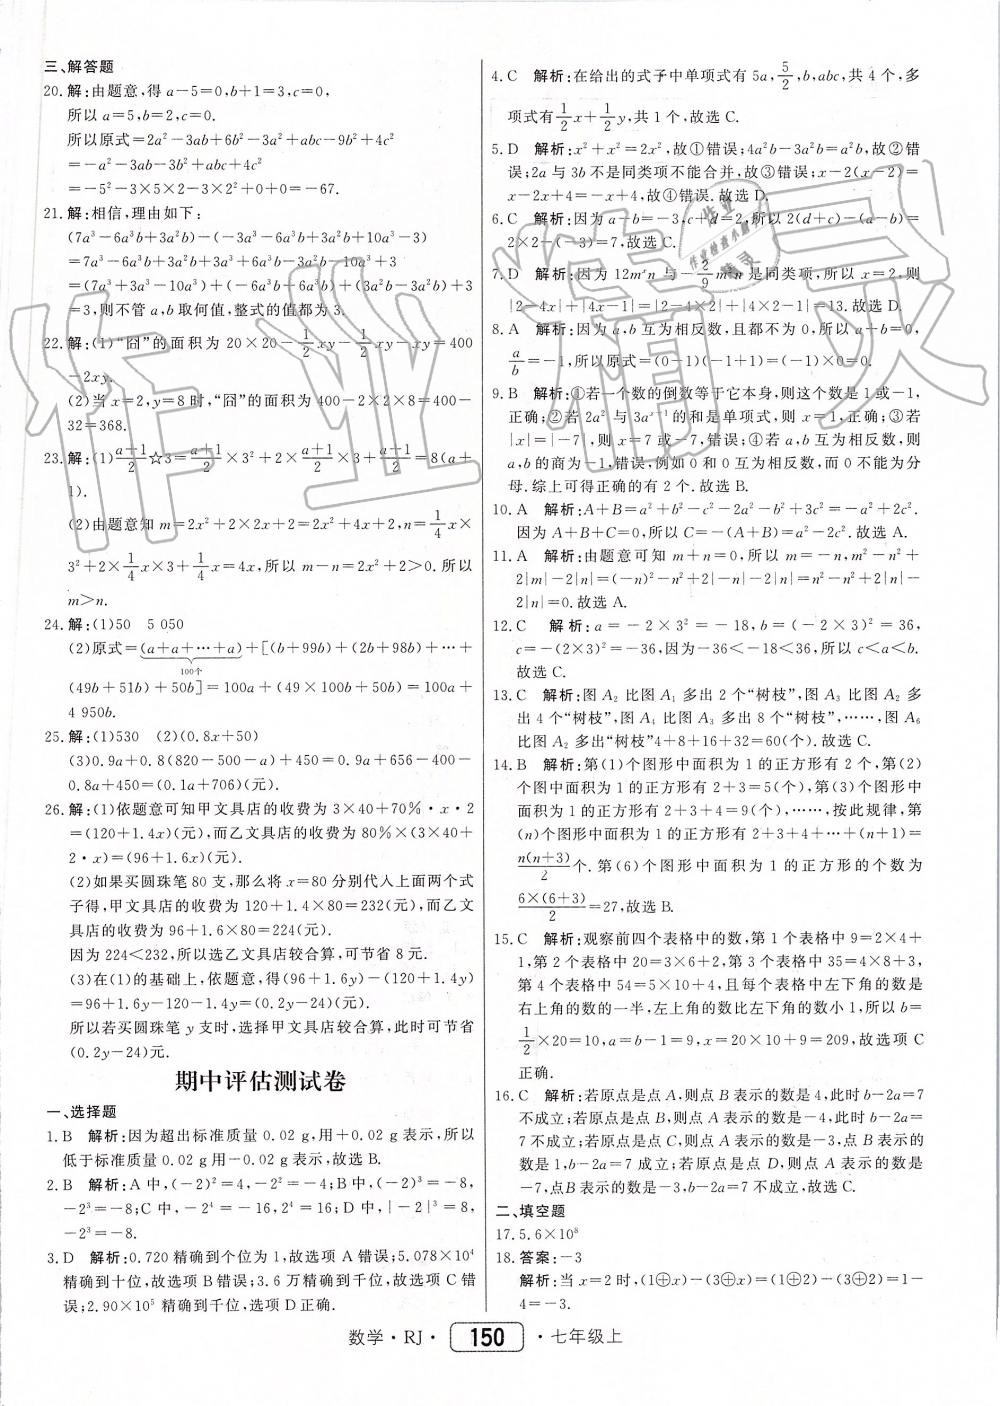 三、解答题
20.解:由题意,得a-5=0,b+1=3,c=0,
所以a=5,b=2,c=0.
所以原式=2a²-3ab+6b²-3a²+abc-9b²+4c²
=-a²-3ab-3b²+abc+4c²
=-5²-3×5×2-3×2²+0+0=-67.
21.解:相信,理由如下:
(7a³-6a³b+3a²b)-(-3a³-6a³b+3a²b+10a³-3)
=7a³-6a³b+3a²b+3a³+6a³b-3a²b-10a³+3
=(7a³+3a³-10a³)+(-6a³b+6a³b)+(3a²b-3a²b)+3
=3,则不管a,b取何值,整式的值都为3.
22.解:(1)“囧”的面积为20×20-1/2xy-1/2xy-xy=400
-2xy.
(2)当x=2,y=8时,“囧”的面积=400-2×2×8=400-
32=368.
23.解:(1)(a+1)/2☆3=(a+1)/2×3²+2×(a+1)/2×3+(a+1)/2=8(a+
1).
(2)由题意知m=2x²+2×2x+2=2x²+4x+2,n=1/4x×
3²+2×1/4x×3+1/4x=4x,所以m-n=2x²+2>0.所以
m>n.
24.解:(1)50 5 050
(2)原式=(a+a+…+a)+[(b+99b)+(2b+98b)+…+
100个
(49b+51b)+50b]=100a+(49×100b+50b)=100a+
4 950b.
25.解:(1)530 (2)(0.8x+50)
(3)0.9a+0.8(820-500-a)+450=0.9a+656-400-
0.8a+450=(0.1a+706)(元).
26.解:(1)依题意可知甲文具店的收费为3×40+70%·x·2
=(120+1.4x)(元),而乙文具店的收费为80%×(3×40+
2·x)=(96+1.6x)(元).
(2)如果买圆珠笔80支,那么将x=80分别代入上面两个式
子得,甲文具店的收费为120+1.4×80=232(元),而乙文
具店的收费为96+1.6×80=224(元).
因为224<232,所以选乙文具店较合算,可节省8元.
(3)在(1)的基础上,依题意,得(96+1.6y)-(120+1.4y)
=96+1.6y-120-1.4y=(0.2y-24)(元).
所以若买圆珠笔y支时,选择甲文具店较合算,此时可节省
(0.2y-24)元.
期中评估测试卷
一、选择题
1.B 解析:因为超出标准质量0.02 g,用+0.02 g表示,所以
低于标准质量0.02 g用-0.02 g表示,故选B.
2.B 解析:A中,(-2)²=4,-2²=-4;B中,(-2)³=-8,
-2³=-8;C中,-2⁴=-16,2⁴=16;D中,|-2|³=8,
-2³=-8.
3.D 解析:0.720精确到个位为1,故选项A错误;5.078×10⁴
精确到十位,故选项B错误;3.6万精确到千位,故选项C错
误;2.90×10⁵精确到千位,选项D正确.
4.C 解析:在给出的式子中单项式有5a,5/2,b,abc,共4个,多
项式有1/2x+1/2y,共1个,故选C.
5.D 解析:x²+x²=2x²,故①错误;4a²b-3a²b=a²b,故②错
误;2a与3b不是同类项不能合并,故③错误;x-2(x-2)=
x-2x+4=-x+4,故④错误.故选D.
6.C 解析:因为a-b=-3,c+d=2,所以2(d+c)-(a-b)=
2×2-(-3)=7,故选C.
7.D 解析:因为12mˣn与-2/9m²n是同类项,所以x=2,则
|2-4x|+|4x-1|=|2-4×2|+|4×2-1|=13.故选D.
8.A 解析:因为a,b互为相反数,且都不为0,所以a+b=0,
a/b=-1,所以原式=(0-1)(-1+1)=(-1)×0=0.
9.B 解析:①若一个数的倒数等于它本身,则这个数是1或-1,
正确;②若2a²与3aˣ⁺¹的和是单项式,则x=1,正确;③若
|x|=|-7|,则x=7或-7,错误;④若a,b互为相反数,则
a,b的商为-1,错误,例如0和0互为相反数,而0不能为分
母.综上可得正确的有2个.故选B.
10.A 解析:A+B=a²+b²-c²-2a²-b²+3c²=-a²+2c².
因为A+B+C=0,所以C=-(A+B)=a²-2c².故选A.
11.A 解析:由题意可知m+n=0,所以m=-n,m²-n²+
2|m|-2|n|=(-n)²-n²+2|-n|-2|n|=n²-n²+2|n|-
2|n|=0.故选A.
12.C 解析:a=-2×3²=-18,b=(-2×3)²=36,
c=-(2×3)²=-36,因为-36<-18<36,所以c<a<b.
故选C.
13.C 解析:图A₂比图A₁多出2个“树枝”,图A₃比图A₂多
出4个“树枝”,图A₄比图A₃多出8个“树枝”,……,图A₆
比图A₂多出“树枝”4+8+16+32=60(个).故选C.
14.B 解析:第(1)个图形中面积为1的正方形有2个,第(2)
个图形中面积为1的正方形有2+3=5(个),第(3)个图形中
面积为1的正方形有2+3+4=9(个),……,按此规律,第
(n)个图形中面积为1的正方形有2+3+4+…+(n+1)=
n(n+3)/2个.第(6)个图形中面积为1的正方形的个数为
6×(6+3)/2=27,故选B.
15.C 解析:观察前四个表格中的数,第1个表格中9=2×4+
1,第2个表格中20=3×6+2,第3个表格中35=4×8+3,
第4个表格中54=5×10+4,且每个表格中左下角的数是
右上角的数的一半,左上角的数比左下角的数小1,所以b=
1/2×20=10,a=b-1=9,x=20×10+9=209,故选项C
正确.
16.C 解析:若原点是点A,则点B表示的数是4,此时b-2a=7
不成立;若原点是点B,则点A表示的数是-4,此时b-2a=
7不成立;若原点是点C,则点A表示的数是-3,点B表示的
数是1,b-2a=7成立;若原点是点D,则点A表示的数是
-7,点B表示的数是-3,b-2a=7不成立,故选C.
二、填空题
17.5.6×10⁸
18.答案:-3
解析:当x=2时,(1⊕x)-(3⊕x)=(1⊕2)-(3⊕2)=1-
4=-3.
数学·RJ· 150 ·七年级上
作业精灵